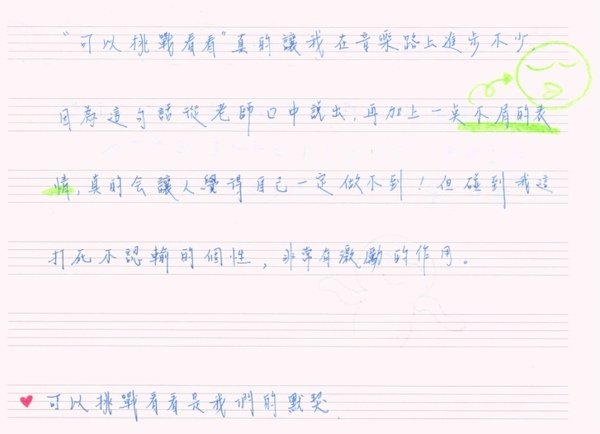 "可以挑戰看看"真的讓我在音樂路上進步不少,
因為這句話從老師口中說出,再加上一点不屑的表
情,真的会讓人覺得自己一定做不到!但碰到我這
打死不認輸的個性,非常有激勵的作用。
♥ 可以挑戰看看是我們的默契.